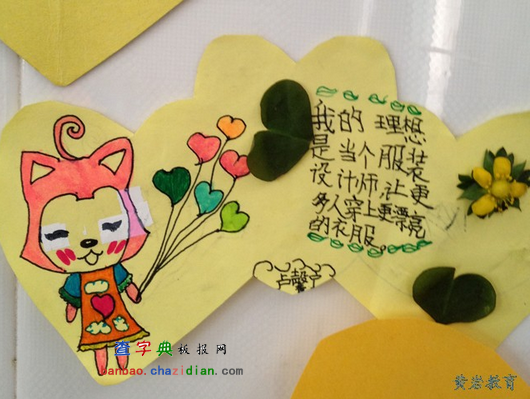 我的理想
是当个服装
设计师，让更
多人穿上更漂亮
的衣服。
卢馨
查字典板报网
banbao.chazidian.com
黄岩教育